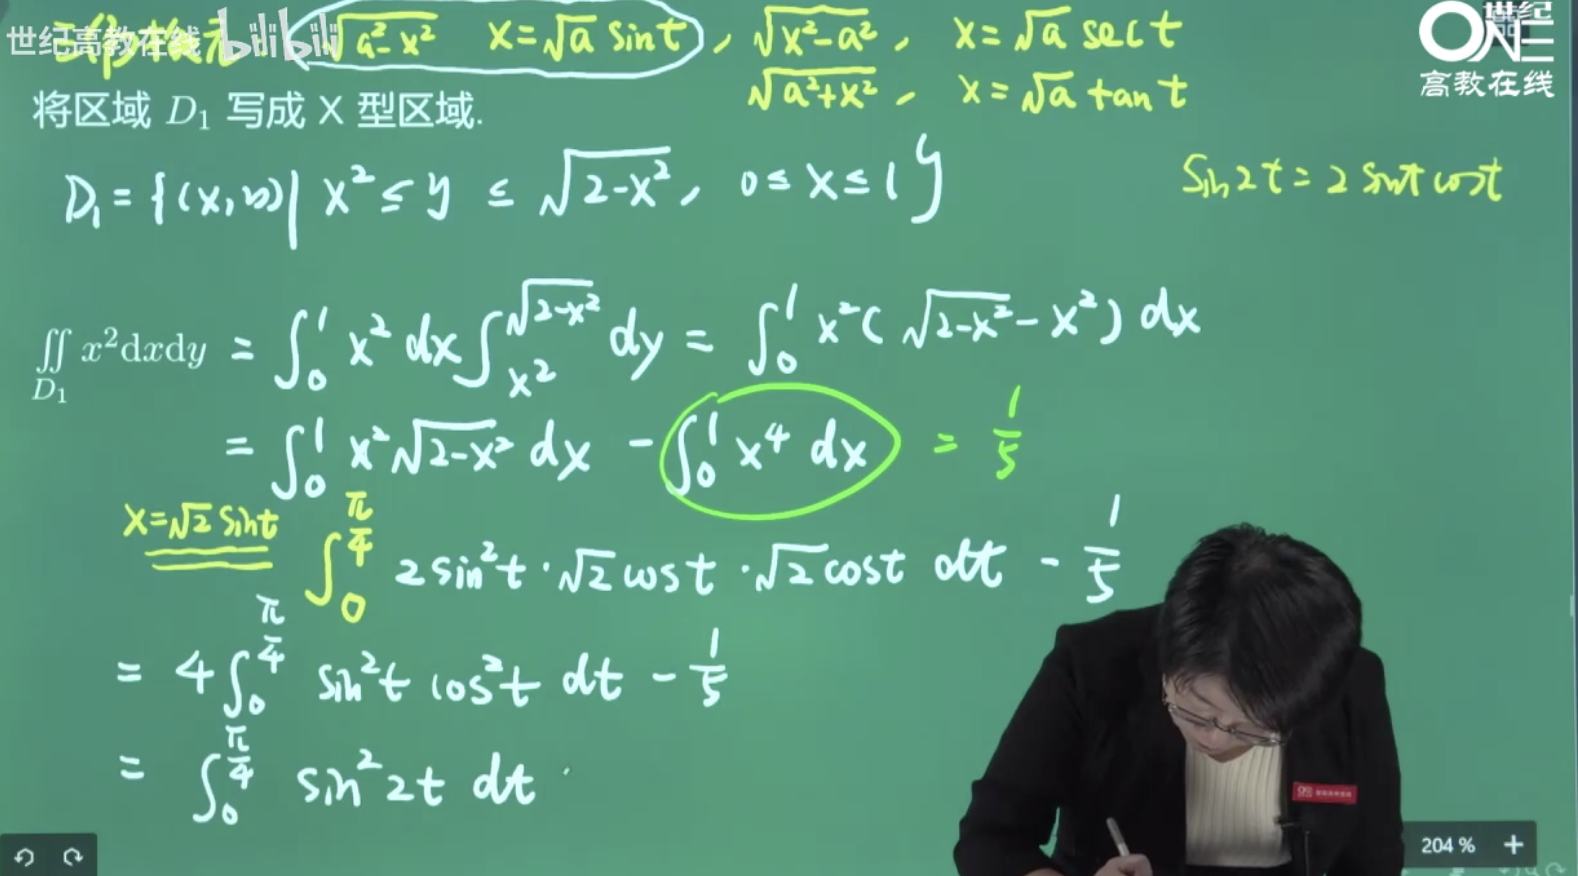 世纪高教在线 bilibili
三角换元 √(a²-x²) x=√a sint, √(x²-a²), x=√a sect
√(a²+x²), x=√a tant
世纪
ONE
高教在线
将区域 D₁ 写成 X 型区域.
D₁={(x,y)| x² ≤ y ≤ √(2-x²), 0≤x≤1}
sin2t=2sint cost
∬_{D₁} x²dxdy = ∫₀¹ x² dx ∫_{x²}^{√(2-x²)} dy = ∫₀¹ x²(√(2-x²)-x²) dx
= ∫₀¹ x²√(2-x²) dx - ∫₀¹ x⁴ dx = 1/5
x=√2 sint ∫₀^{π/4} 2sin²t·√2cost·√2cost dt - 1/5
= 4∫₀^{π/4} sin²t cos²t dt - 1/5
= ∫₀^{π/4} sin²2t dt
204 % +